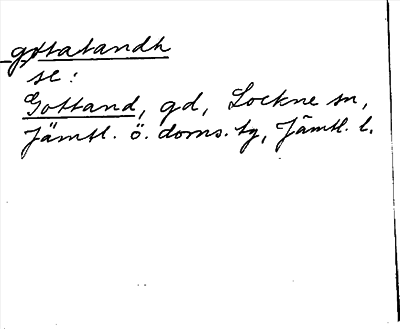 se:
Gottand, gd, Lockne sn,
Jämtl. ö. doms. tg, Jämtl. l.